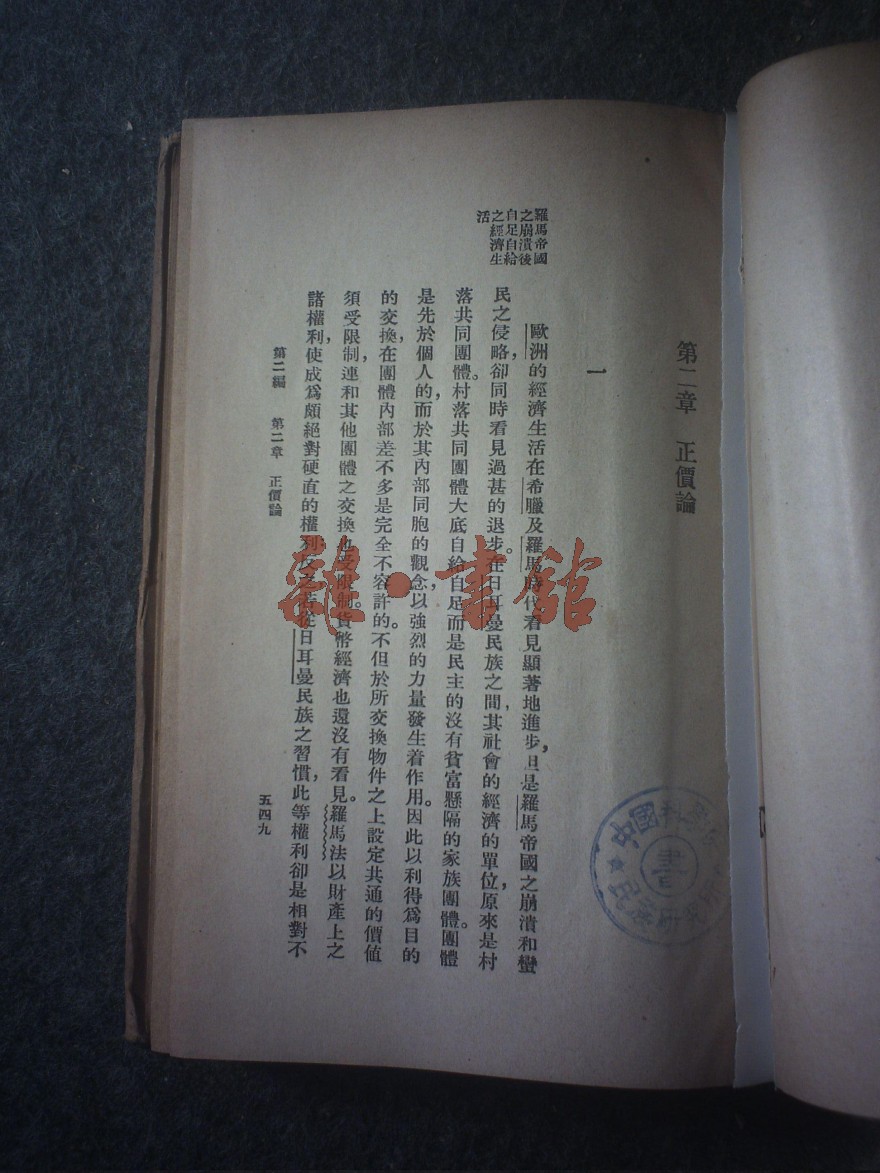 第二章　正價論
一
羅馬帝國
之崩潰後
自足自給
之經濟生
活
歐洲的經濟生活在希臘及羅馬時代看見顯著地進步，但是羅馬帝國之崩潰和蠻
民之侵略，卻同時看見過甚的退步。在日耳曼民族之間，其社會的經濟的單位，原來是村
落共同團體。村落共同團體大底自給自足而是民主的沒有貧富懸隔的家族團體。團體
是先於個人的，而於其內部同胞的觀念，以強烈的力量發生着作用。因此以利得爲目的
的交換，在團體內部差不多是完全不容許的。不但於所交換物件之上設定共通的價值
須受限制，連和其他團體之交換也受限制。貨幣經濟也還沒有看見。羅馬法以財產上之
諸權利，使成爲頗絕對硬直的權利，反之若從日耳曼民族之習慣，此等權利卻是相對不
第二編　第二章　正價論
五四九
雜·書館
中國科學
民族研究所
書